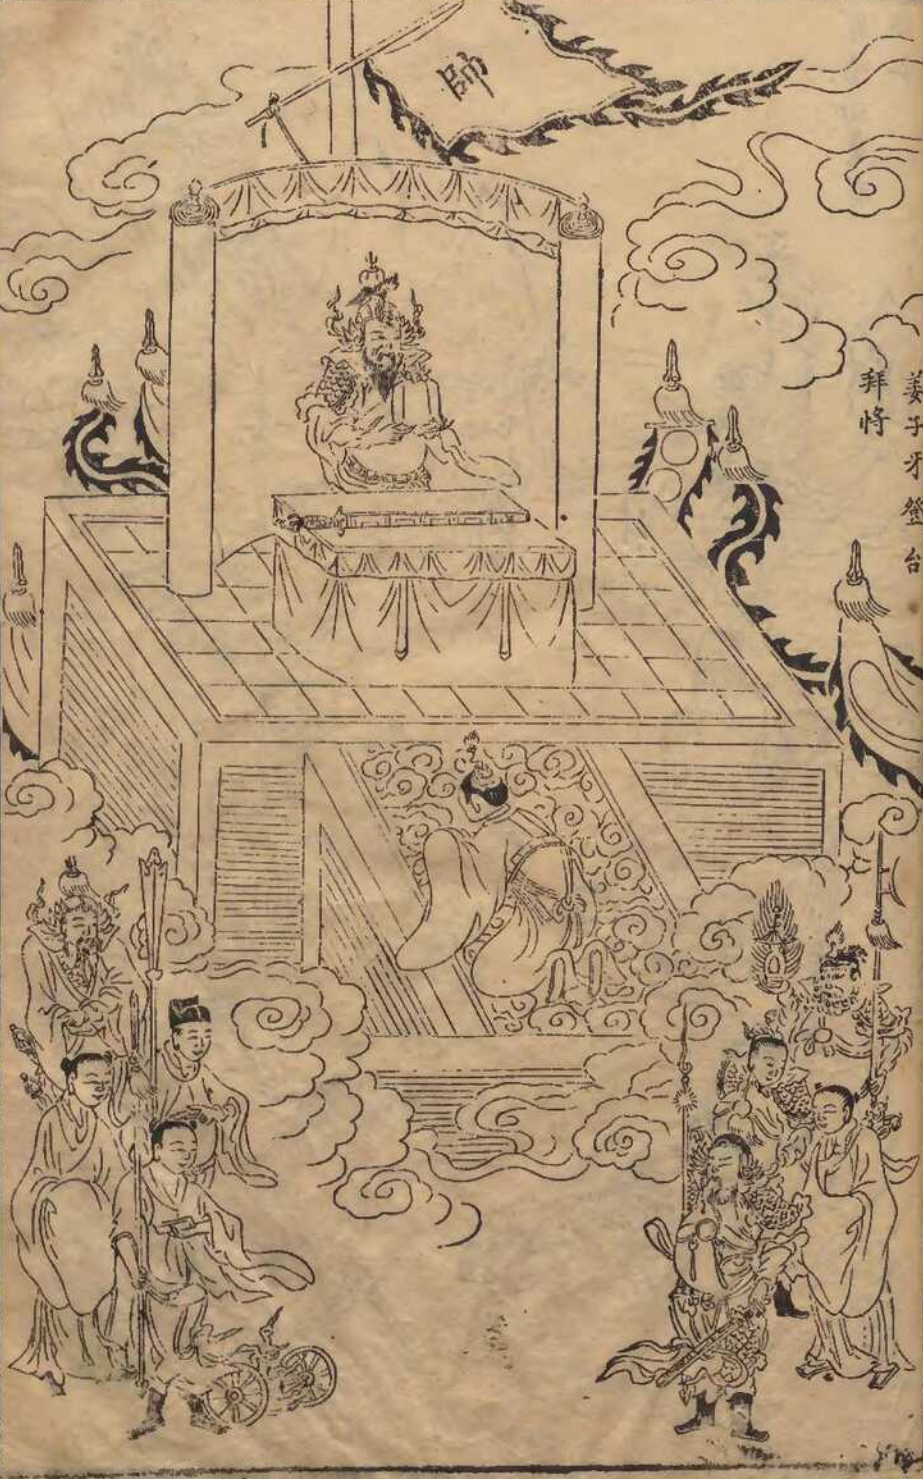 帥
姜子牙登台
拜将